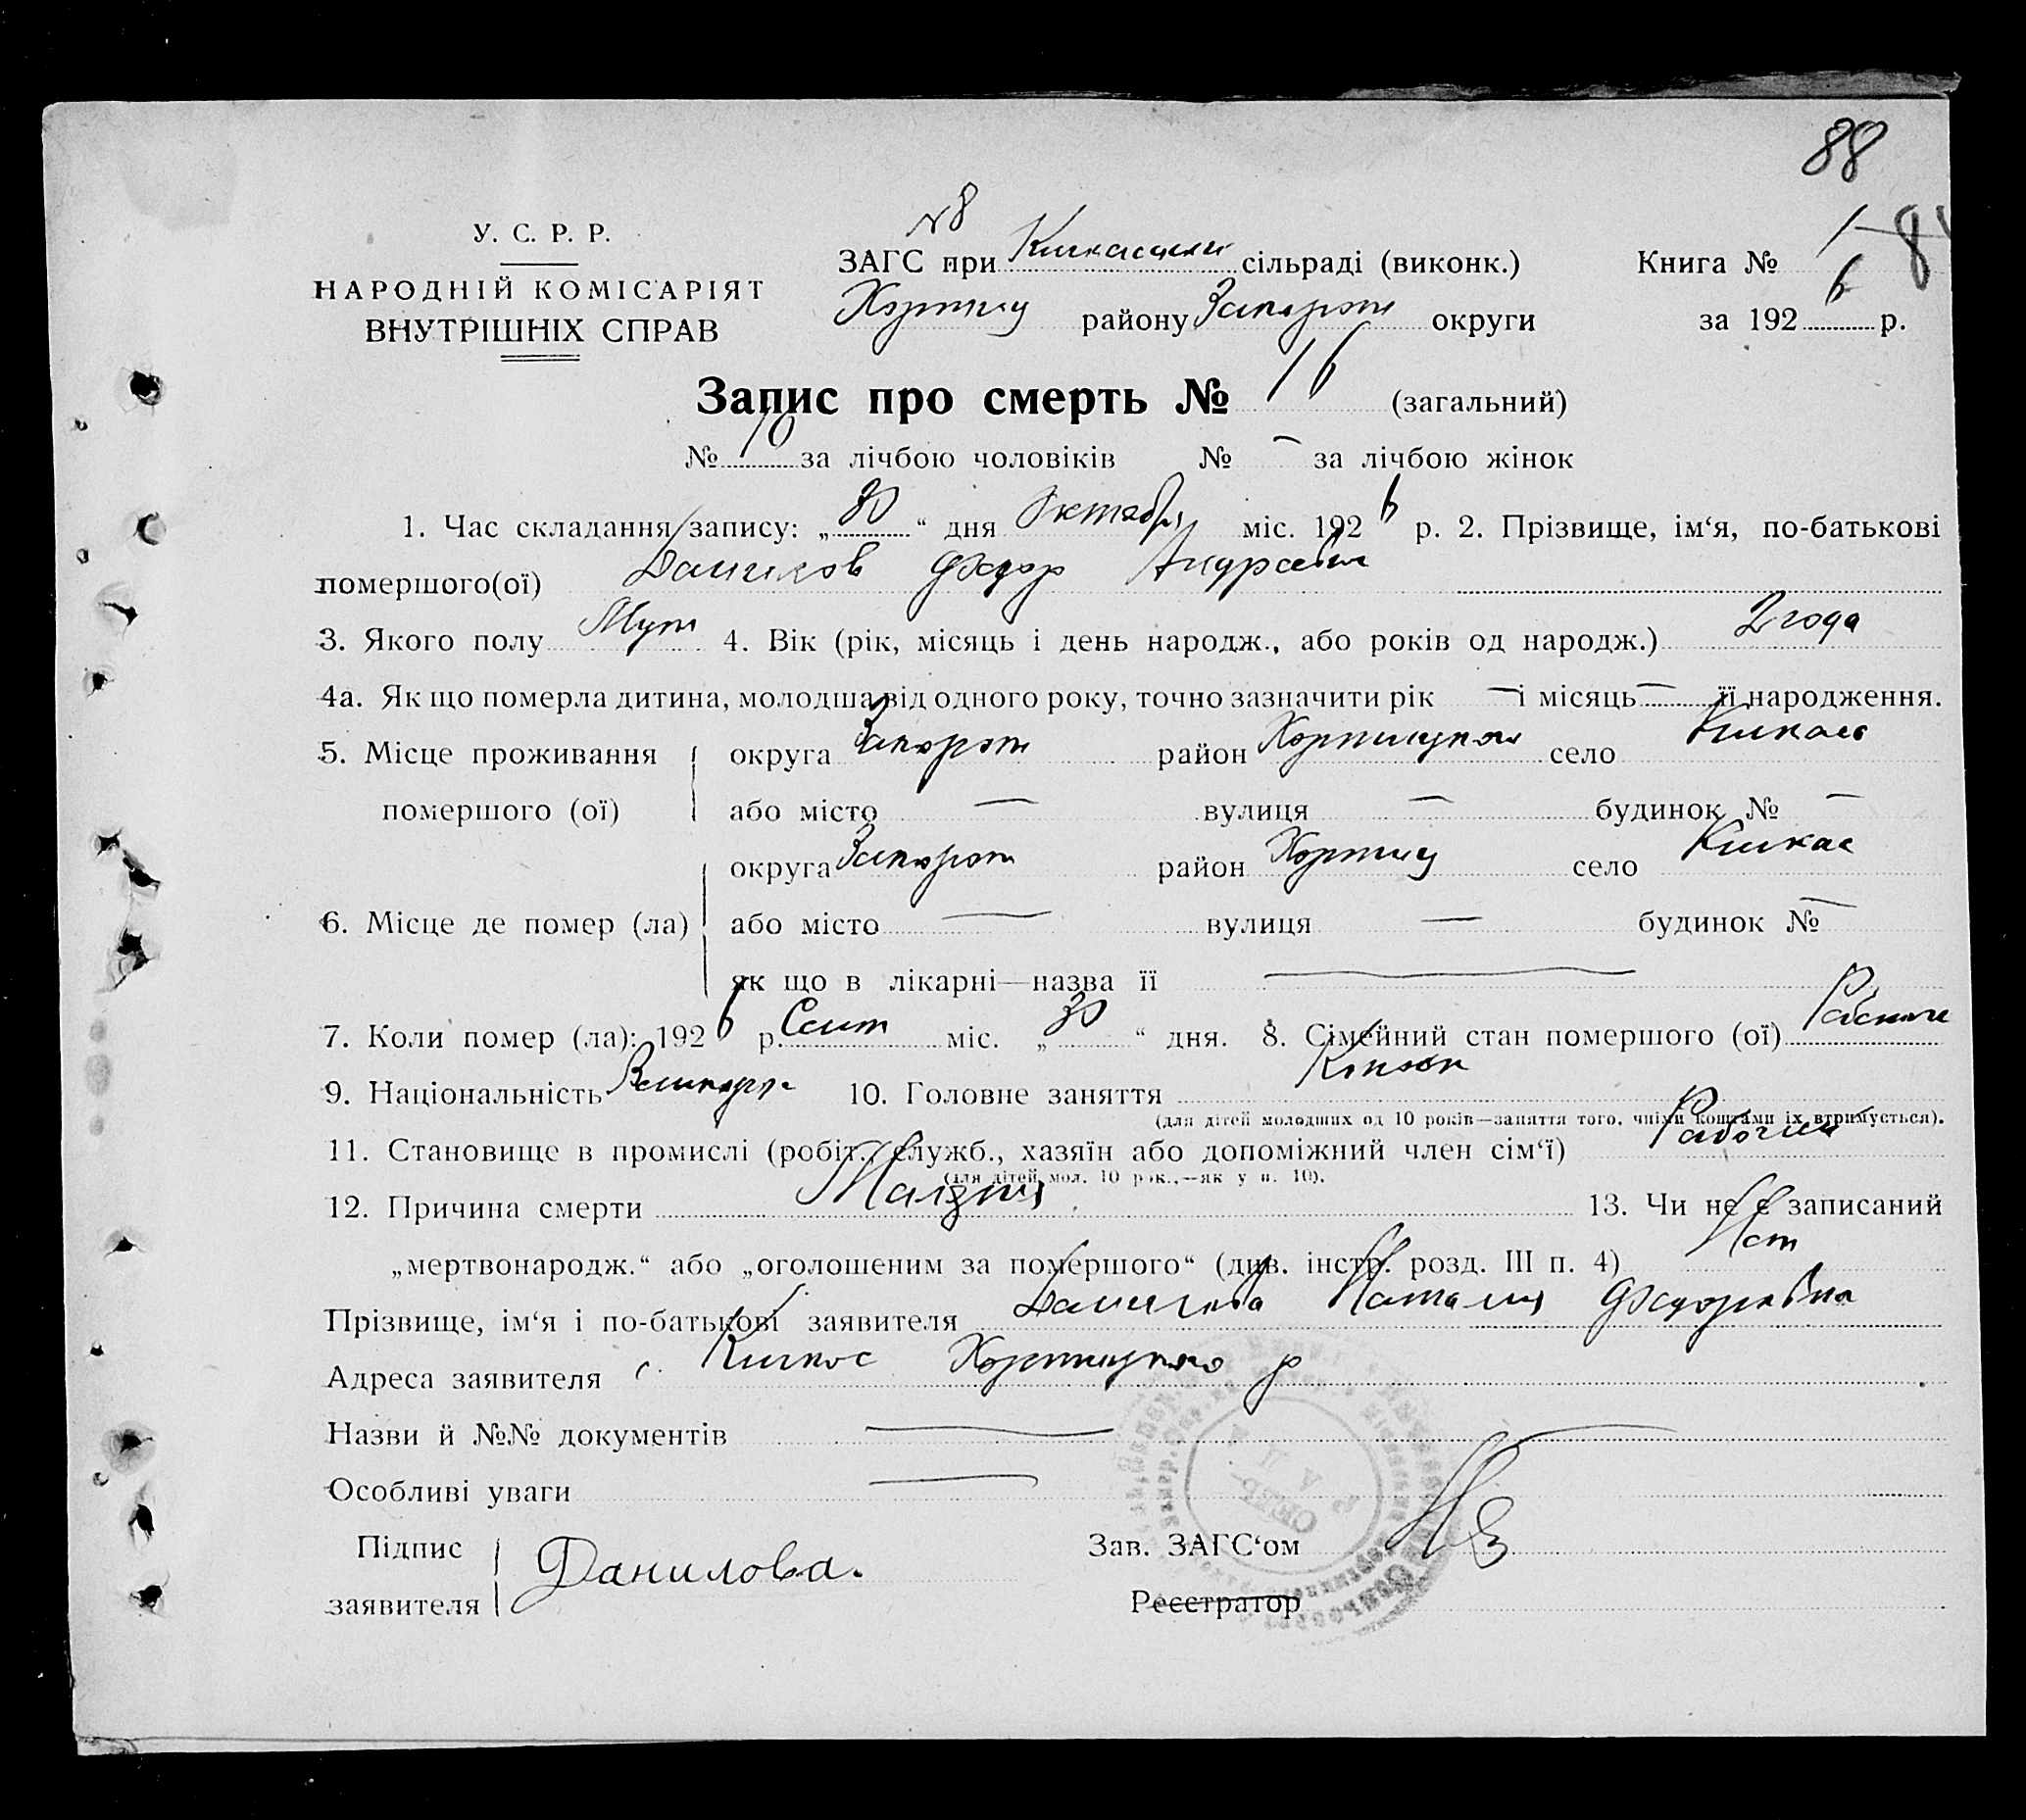 88
№ 8
У. С. Р. Р.
НАРОДНІЙ КОМІСАРІЯТ
ВНУТРІШНІХ СПРАВ
ЗАГС при Кичкасский сільраді (виконк.)
Хортиц району Запорож округи
Книга № 1
за 192 6 р.
Запис про смерть № 16 (загальний)
№ 10 за лічбою чоловіків № — за лічбою жінок
1. Час складання запису: „ 30 “ дня Октября міс. 192 6 р. 2. Прізвище, ім‘я, по-батькові
помершого(ої) Данилов Федор Андреев
3. Якого полу Муж 4. Вік (рік, місяць і день народж., або років од народж.) 2 года
4а. Як що померла дитина, молодша від одного року, точно зазначити рік — і місяць — її народження.
5. Місце проживання округа Запорож район Хортицком село Кичкас
помершого (ої) або місто — вулиця — будинок № —
округа Запорож район Хортиц село Кичкас
6. Місце де помер (ла) або місто — вулиця — будинок № —
як що в лікарні—назва її —
7. Коли помер (ла): 192 6 р. Сент міс. „ 30 “ дня. 8. Сімейний стан помершого (ої)
9. Національність Великорр 10. Головне заняття
(для дітей молодших од 10 років—заняття того, чиїми коштами їх втримується).
11. Становище в промислі (робіт., служб., хазяїн або допоміжний член сім‘ї) Рабочий
(для дітей мол. 10 рок.,—як у п. 10).
12. Причина смерти Малярия 13. Чи не є записаний
„мертвонародж.“ або „оголошеним за помершого“ (див. інстр. розд. III п. 4) Нет
Прізвище, ім‘я і по-батькові заявителя Данилова Наталия Федоровна
Адреса заявителя с. Кичкас Хортицкого р
Назви й №№ документів —
Особливі уваги —
Підпис
заявителя Данилова.
Зав. ЗАГС‘ом
Реєстратор